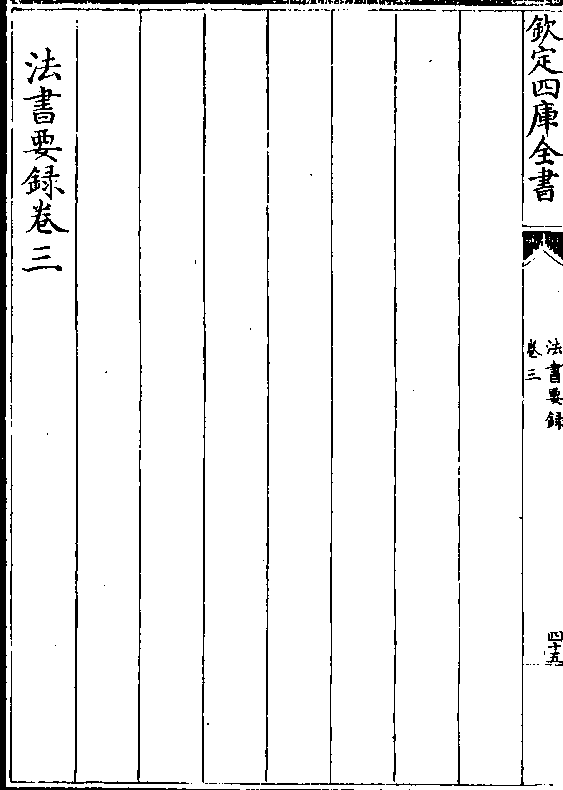 欽定四庫全書
法書要録
卷三
四十五
法書要録卷三